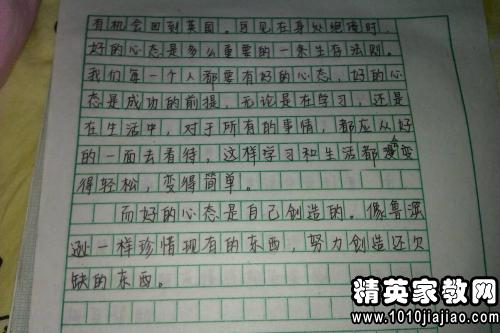 有机会回到英国。可见在身处绝境时，
好的心态是多么重要的一条生存法则。
我们每一个人都要有好的心态，好的心
态是成功的前提，无论是在学习，还是
在生活中，对于所有的事情，都应从好
的一面去看待，这样学习和生活都会变
得轻松，变得简单。
而好的心态是自己创造的。像鲁滨
逊一样珍惜现有的东西，努力创造还欠
缺的东西。
精英家教网
www.1010jiajiao.com